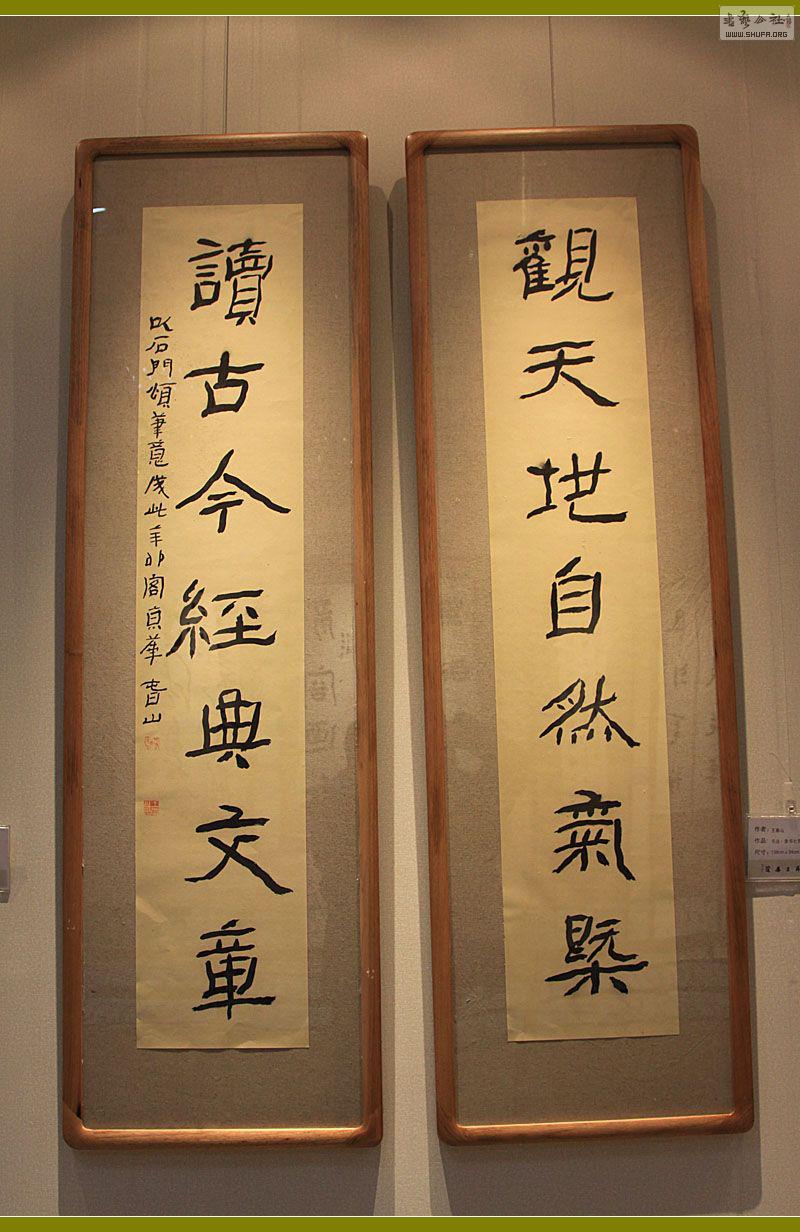 書藝公社
WWW.SHUFA.ORG
觀天地自然氣槩
讀古今經典文章
以石門頌筆意成此辛卯閣真華
山
作者：王
作品：
尺寸：